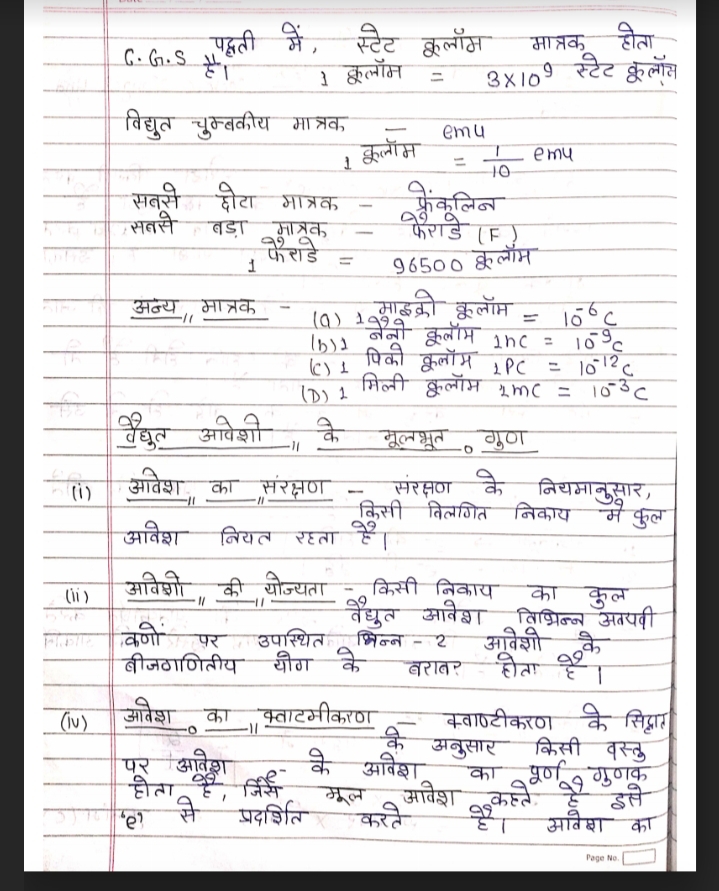 C.G.S पद्दती में, स्टेट कूलॉम मात्रक होता
है। 1 कूलॉम = 3×10⁹ स्टेट कूलॉम
विद्युत चुम्बकीय मात्रक — emu
1 कूलॉम = 1/10 emu
सबसे छोटा मात्रक — फ्रेंकलिन
सबसे बड़ा मात्रक — फैराडे (F)
1 फैराडे = 96500 कूलॉम
अन्य मात्रक - (a) 1 माइक्रो कूलॉम = 10⁻⁶ C
(b) 1 नैनो कूलॉम 1nC = 10⁻⁹C
(C) 1 पिको कूलॉम 1PC = 10⁻¹²C
(D) 1 मिली कूलॉम 1mC = 10⁻³C
वैद्युत आवेशो के मूलभूत गुण
(i) आवेश का संरक्षण — संरक्षण के नियमानुसार,
किसी विलगित निकाय में कुल
आवेश नियत रहता है।
(ii) आवेशो की योज्यता - किसी निकाय का कुल
वैद्युत आवेश विभिन्न अवयवी
कणो पर उपस्थित भिन्न-2 आवेशो के
बीजगणितीय योग के बराबर होता है।
(iv) आवेश का क्वाटमीकरण — क्वाण्टीकरण के सिद्वात
के अनुसार किसी वस्तु
पर आवेश e⁻ के आवेश का पूर्ण गुणक
होता है, जिसे मूल आवेश कहते है इसे
'e' से प्रदर्शित करते है। आवेश का
Page No.